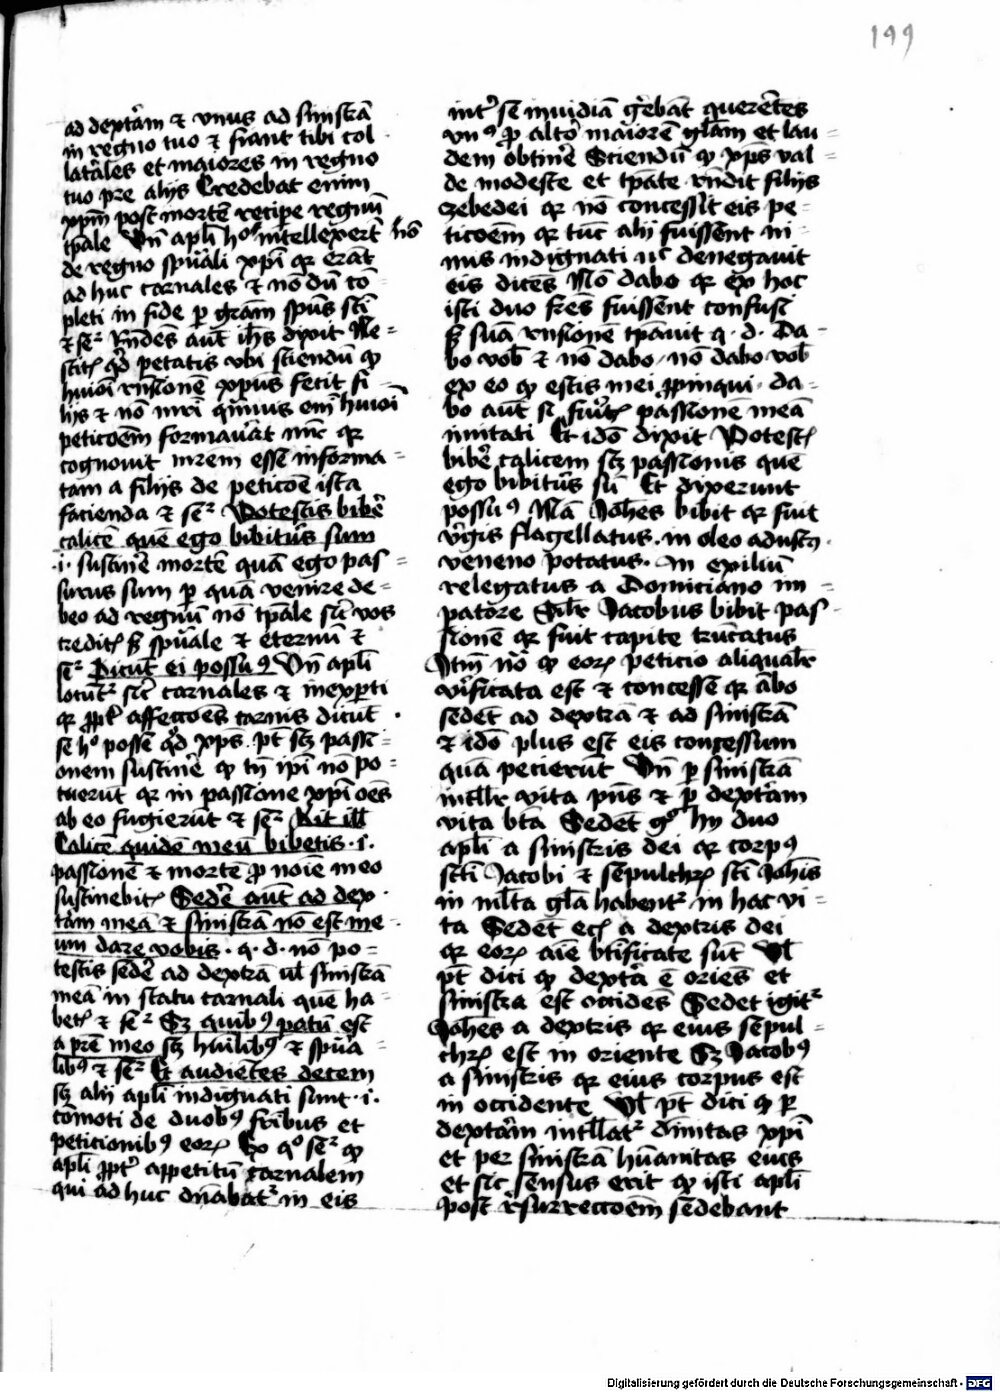 199
ad dext̄am ⁊ vnus ad sinist̄a
in regno tuo ⁊ fiant tibi col
lat̄ales et maiores in regno
tuo pre alijs Credebat enim
xp̄m post mortē recipe regnū
tp̄ale Vn̄ apl̄i hoᶜ intellexer̄t nō
de regno spūali xp̄i qr erāt
ad huc carnales ⁊ nō dū cō
pleti in fide p gr̄am sp̄us sc̄i
⁊ seʳ Rn̄dēs aūt ih̄s dixit Ne=
scitꝭ qͥd petatis vbi sciendū ꝙ
huiōi rn̄sionē xp̄us fecit fi
lijs ⁊ nō mr̄i qͣmuis em̄ huiōi
peticōēm formau̾at mr̄ qr
cognouit mr̄em esse informa=
tam a filijs de peticōē ista
facienda ⁊ seʳ Potestis bibe̾
calicē quē ego bibitur̾ sum
·i· sustine̾ mortē quā ego pas=
surus sum p quā venire de=
beo ad regnū nō tp̄ale sic̄ vos
creditꝭ sꝫ spūale ⁊ eternū ⁊
seʳ Dicūt ei possuꝰ Vn̄ apl̄i
locūtʳ sic̄ carnales ⁊ inexp̄ti
qr ꝓpt̾ affecc̄oēs carnis dicūt
se hoᶜ posse qͥd xp̄s pt̄ scꝫ passi=
onem sustine̾ ꝙ tn̄ ip̄i nō po=
tuerūt qr in passione xp̄i oēs
ab eo fugierūt ⁊ seʳ Ait ill̄
Calicē quidē meū bibetis ·i·
passionē ⁊ mortē ꝓ noīe meo
sustinebitꝭ Sede̾ aūt ad dex
t̄am meā ⁊ sinist̄a nō est me
um dare vobis · q· d· nō po=
testis sede̾ ad dext̄a ul̄ sinist̄a
meā in statu carnali quē ha=
betꝭ ⁊ seʳ Sꝫ quibꝰ patū est
a pr̄e meo scꝫ huīlibꝰ ⁊ spūa=
libꝰ ⁊ seʳ Et audientes decem
scꝫ alij apl̄i indignati sunt ·i·
cōmoti de duobꝰ fr̄ibus et
peticionibꝰ eoꝝ Ex qͦ seʳ ꝙ
apl̄i ꝓpt̾ appetitū carnalem
qui ad huc dn̄abatʳ in eis
int̾ se inuidiā ge̾bāt querētes
vnꝰ p̄ alto̾ maiorē gl̄am et lau=
dem obtine̾ Sciendū ꝙ xp̄s val=
de modeste et tp̄ate rn̄dit filijs
zebedei qr nō concessit eis pe=
ticoēm qr tūc alij fuissent ni=
mis indignati nc̄ denegauit
eis dicēs Nō dabo qr ex hoc
isti duo fr̄es fuissent confusi
sꝫ suā rn̄sionē tp̄auit q· d· Da=
bo vob̄ ⁊ nō dabo nō dabo vob̄
ex eo ꝙ estis mei ꝓpinqui· da=
bo aūt si fu̾itꝭ passionē meā
imitati Et idō dixit Potestꝭ
bibe̾ calicem scꝫ passionis quē
ego bibitur̾ sū Et dixerunt
possuꝰ Nā Joh̄es bibit qr fuit
v̾gis flagellatus· in oleo adustꝰ·
veneno potatus· in exiliū
relegatus a Domiciano im=
patore Sil̄r Jacobus bibit pas=
sionē qr fuit capite trūcatus
Itm̄ nō ꝙ eoꝝ peticio aliqual̄r
v̾ificata est ⁊ concesse qr ābo
sedēt ad dext̄a ⁊ ad sinist̄a
⁊ idō plus est eis concessum
quā pecierūt Vn̄ p sinist̄a
intll̄r vita pn̄s ⁊ p dext̄am
vita bt̄a Sedēt gͦ hij duo
apl̄i a sinistris dei qr corpꝰ
sc̄i Jacobi ⁊ sepulchꝝ sc̄i Joh̄is
in ml̄ta gl̄a habentʳ in hac vi=
ta Sedēt ec̄ a dextris dei
qr eoꝝ aīe bt̄ificate sūt Vl̄
pt̄ dici ꝙ dext̄a ē oriēs et
sinistra est occidēs Sedet igitʳ
Joh̄es a dextris qr eius sepul=
chꝝ est in oriente Sꝫ Jacobꝰ
a sinistris qr eius corpus est
in occidente Vl̄ pt̄ dici ꝙ p
dext̄am intll̄atʳ diuitas xp̄i
et per sinist̄a hūanitas eius
et sic sensus erit ꝙ isti apl̄i
post r̾surreccōēm sedebant
Digitalisierung gefördert durch die Deutsche Forschungsgemeinschaft - DFG